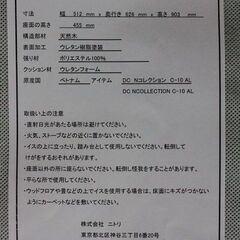 寸法 幅 512 mm x 奥行き 626 mm x 高さ 903 mm
座面の高さ 455 mm
構造部材 天然木
表面加工 ウレタン樹脂塗装
張り材 ポリエステル100%
クッション材 ウレタンフォーム
原産国 ベトナム アイテム DC Nコレクション C-10 AL
DC NCOLLECTION C-10 AL
取扱い上の注意
・直射日光があたる場所は避けてください。
・火気、ストーブなどの近くに置かないでください。
・イスの上に立ったり、踏み台として使用しないでください。転倒し
けがをするおそれがあります。
・座面以外の所に座らないでください。転倒し怪我をすることがあり
ます。
・屋外で使用しないでください。
・ウッドフロアや畳などの上でイスを使用する場合は、床面にキズがつかない
ようにカーペットなどを敷いてください。
株式会社 ニトリ
東京都北区神谷三丁目6番20号